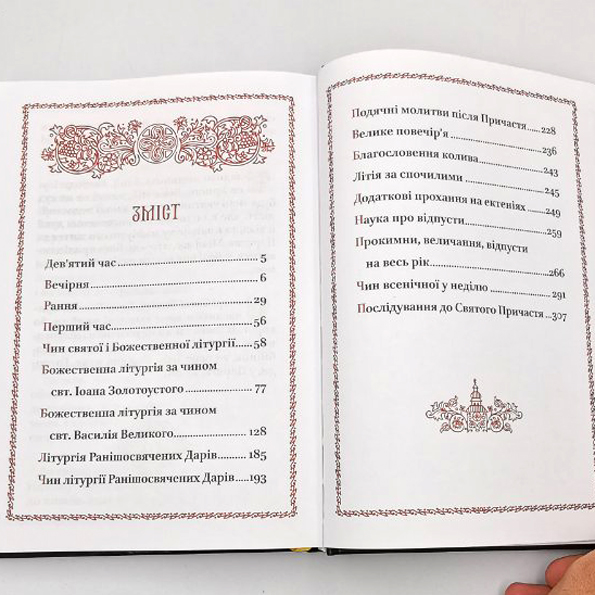 ЗМІСТ
Дев'ятий час 5
Вечірня 6
Рання 29
Перший час 56
Чин святої і Божественної літургії 58
Божественна літургія за чином
свт. Іоана Золотоустого 77
Божественна літургія за чином
свт. Василія Великого 128
Літургія Ранішосвячених Дарів 185
Чин літургії Ранішосвячених Дарів 193
Подячні молитви після Причастя 228
Велике повечір'я 236
Благословення колива 243
Літія за спочилими 245
Додаткові прохання на ектеніях 249
Наука про відпусти 259
Прокимни, величання, відпусти
на весь рік 266
Чин всенічної у неділю 291
Послідування до Святого Причастя 307